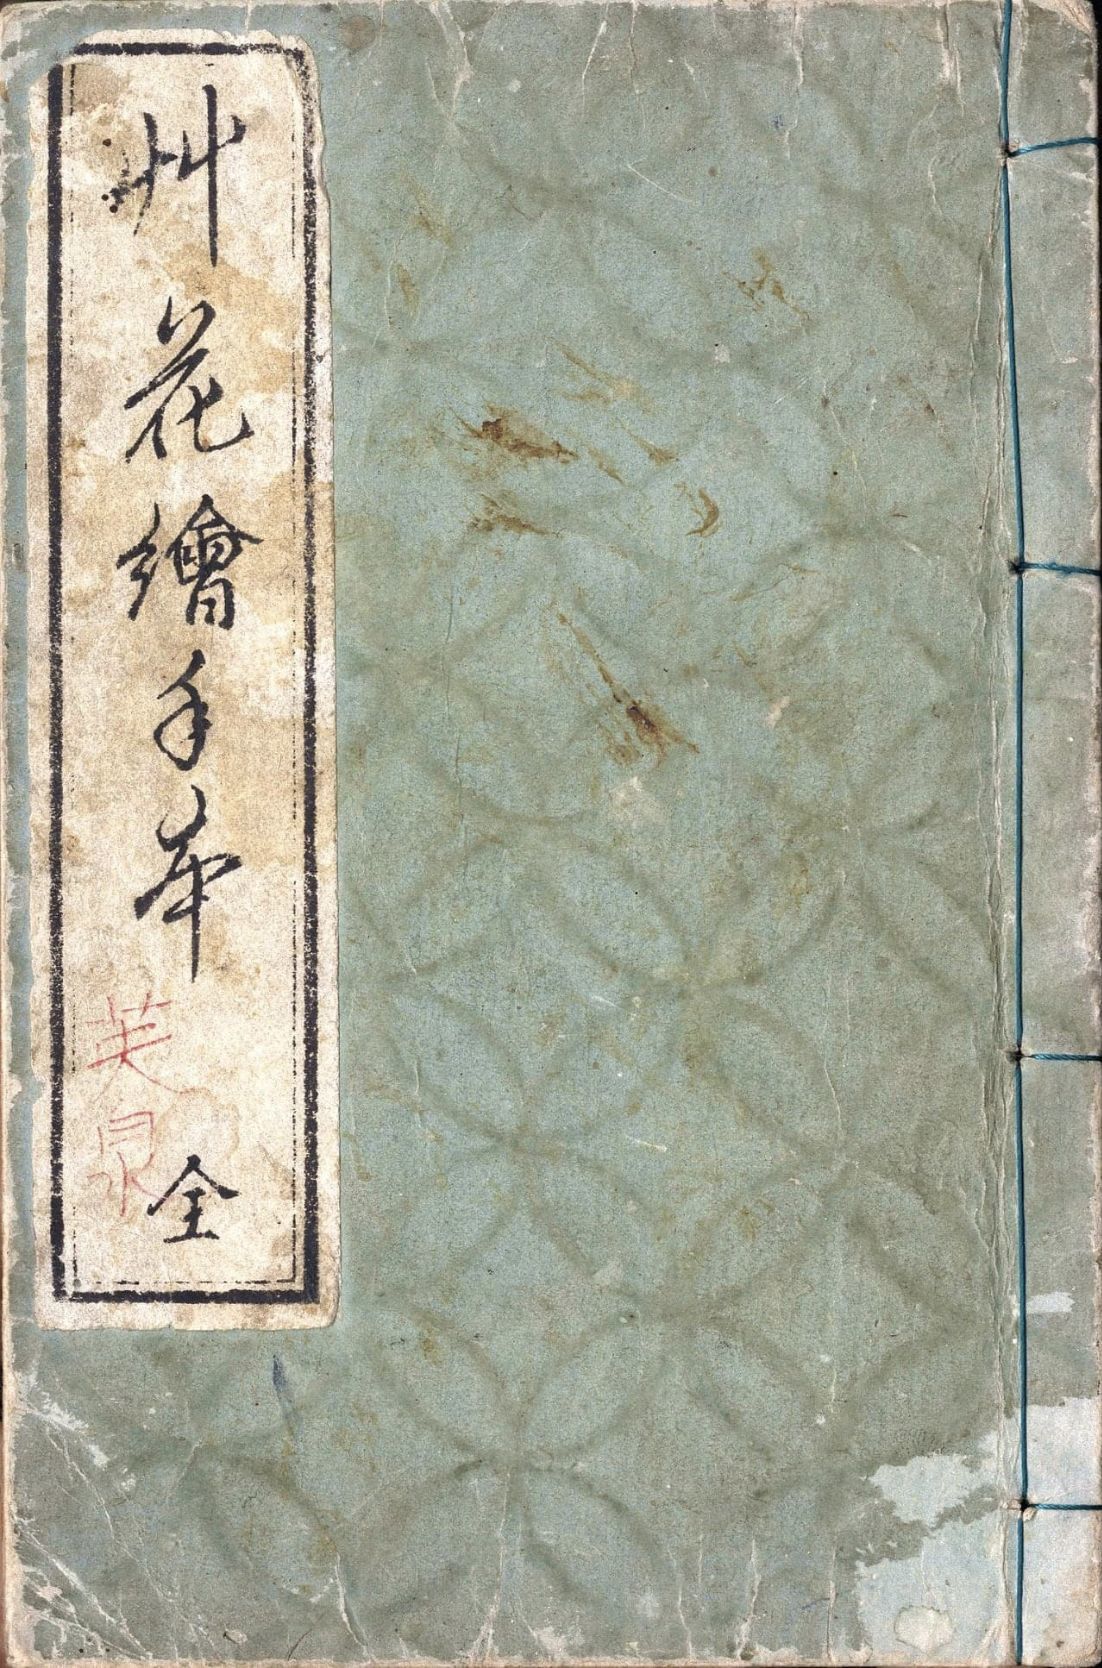 艸花繪手本
全
英泉